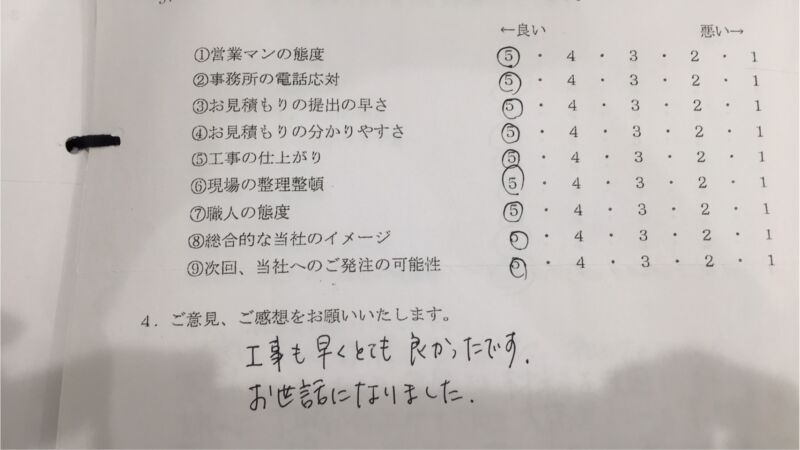 ←良い 悪い→
①営業マンの態度 5・4・3・2・1
②事務所の電話応対 5・4・3・2・1
③お見積もりの提出の早さ 5・4・3・2・1
④お見積もりの分かりやすさ 5・4・3・2・1
⑤工事の仕上がり 5・4・3・2・1
⑥現場の整理整頓 5・4・3・2・1
⑦職人の態度 5・4・3・2・1
⑧総合的な当社のイメージ 5・4・3・2・1
⑨次回、当社へのご発注の可能性 5・4・3・2・1
4．ご意見、ご感想をお願いいたします。
工事も早くとても良かったです.
お世話になりました.